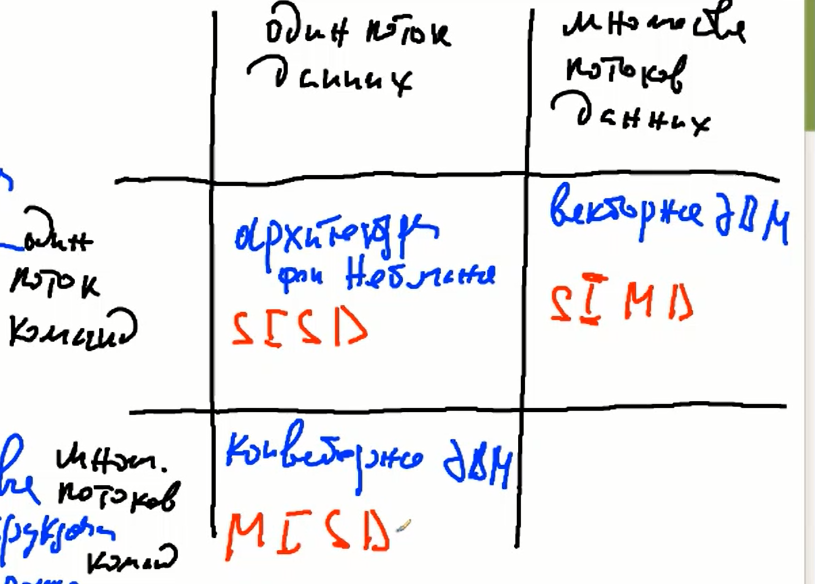 один поток
данных
множество
потоков
данных
один
поток
команд
архитектура
фон Неймана
SISD
векторные ЭВМ
SIMD
множ.
потоков
команд
конвейерные ЭВМ
MISD